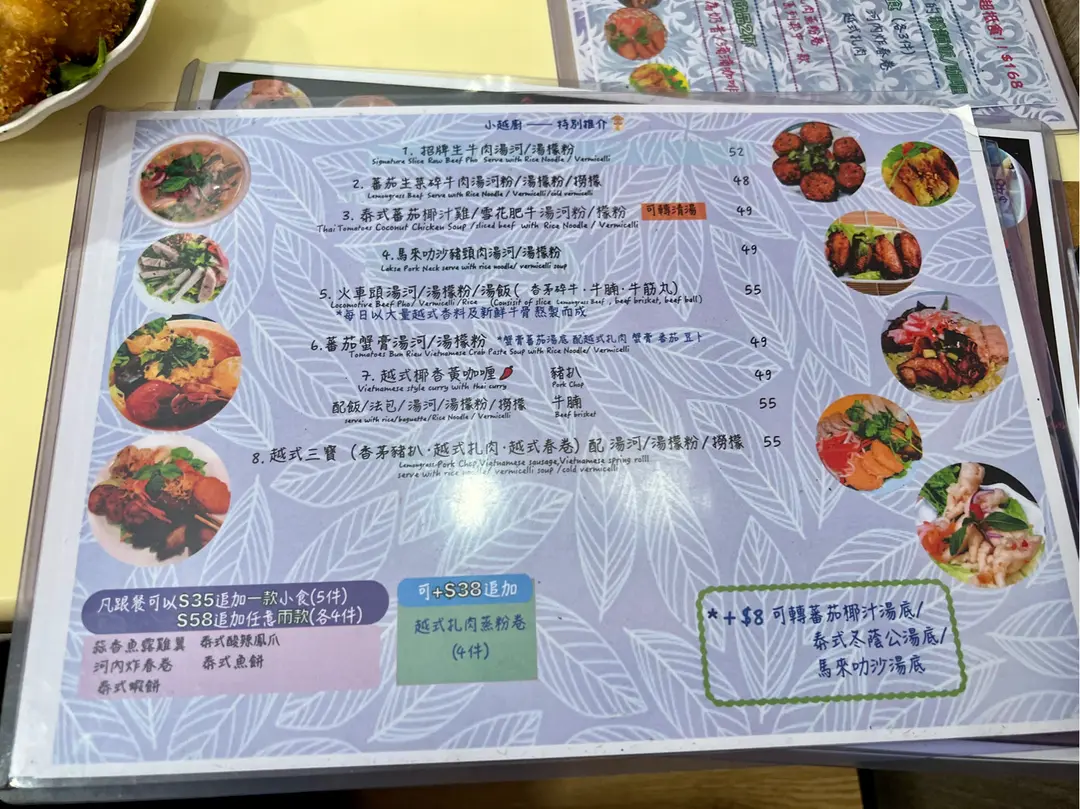 抵食!! $168
(各3件)
河內炸春卷
越式扎肉
小越廚 —— 特別推介
1. 招牌生牛肉湯河/湯檬粉 52
Signature Slice Raw Beef Pho Serve with Rice Noodle / Vermicelli
2. 蕃茄生菜碎牛肉湯河粉/湯檬粉/撈檬 48
Lemongrass Beef Serve with Rice Noodle / Vermicelli/cold vermicelli
3. 泰式蕃茄椰汁雞/雪花肥牛湯河粉/檬粉 可轉清湯 49
Thai Tomatoes Coconut Chicken Soup /sliced beef with Rice Noodle / Vermicelli
4. 馬來叻沙豬頸肉湯河/湯檬粉 49
Laksa Pork Neck serve with rice noodle/ vermicelli soup
5. 火車頭湯河/湯檬粉/湯飯( 香茅碎牛·牛腩·牛筋丸) 55
Locomotive Beef Pho/ Vermicelli /Rice (Consisit of slice Lemongrass Beef , beef brisket, beef ball)
*每日以大量越式香料及新鮮牛骨熬製而成
6. 蕃茄蟹膏湯河/湯檬粉 *蟹膏蕃茄湯底 配越式扎肉 蟹膏 番茄 豆卜 49
Tomatoes Bun Rieu Vietnamese Crab Paste Soup with Rice Noodle/ Vermicelli
7. 越式椰香黃咖喱 豬扒 49
Vietnamese style curry with thai curry Pork Chop
配飯/法包/湯河/湯檬粉/撈檬 牛腩 55
serve with rice/baguette/Rice Noodle / Vermicelli Beef brisket
8. 越式三寶 (香茅豬扒·越式扎肉·越式春卷) 配 湯河/湯檬粉/撈檬 55
Lemongrass Pork Chop,Vietnamese sausage,Vietnamese spring rolll
serve with rice noodle/ vermicelli soup /cold vermicelli
凡跟餐可以$35追加一款小食(5件)
$58追加任意兩款(各4件)
蒜香魚露雞翼 泰式酸辣鳳爪
河內炸春卷 泰式魚餅
泰式蝦餅
可+$38追加
越式扎肉蒸粉卷
(4件)
*+$8 可轉蕃茄椰汁湯底/
泰式冬蔭公湯底/
馬來叻沙湯底